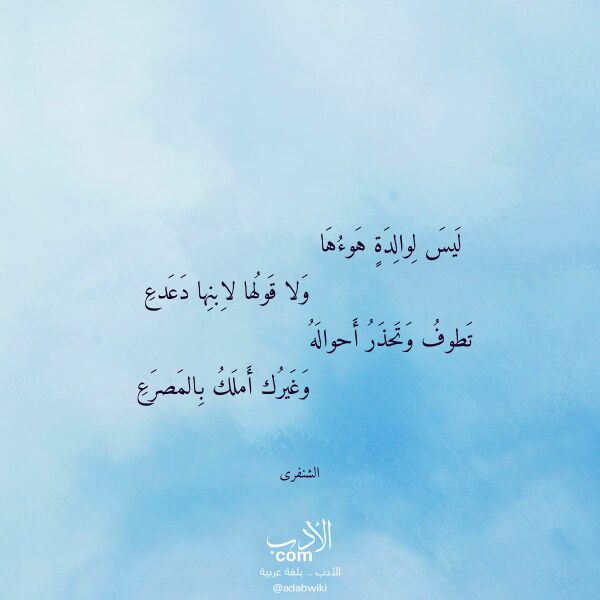 لَيسَ لِوالِدَةٍ هَوءُهَا
وَلا قَولُها لاِبنِها دَعَدعِ
تَطوفُ وَتَحذَرُ أَحوالَهُ
وَغَيرُك أَملَكُ بِالمَصرَعِ
الشنفرى
الأدب
com
الأدب .. بلغة عربية
@adabwiki